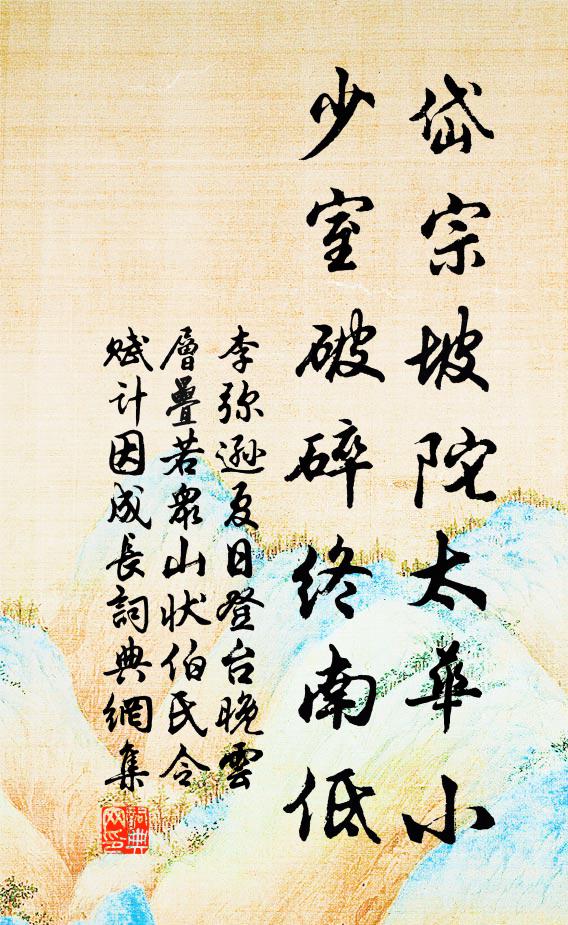 岱宗坡陀太華小
少室破碎終南低
李弥遜夏日登台晚雲
層疊若衆山狀伯氏令
賦計因成長詞典網集
詞典网印